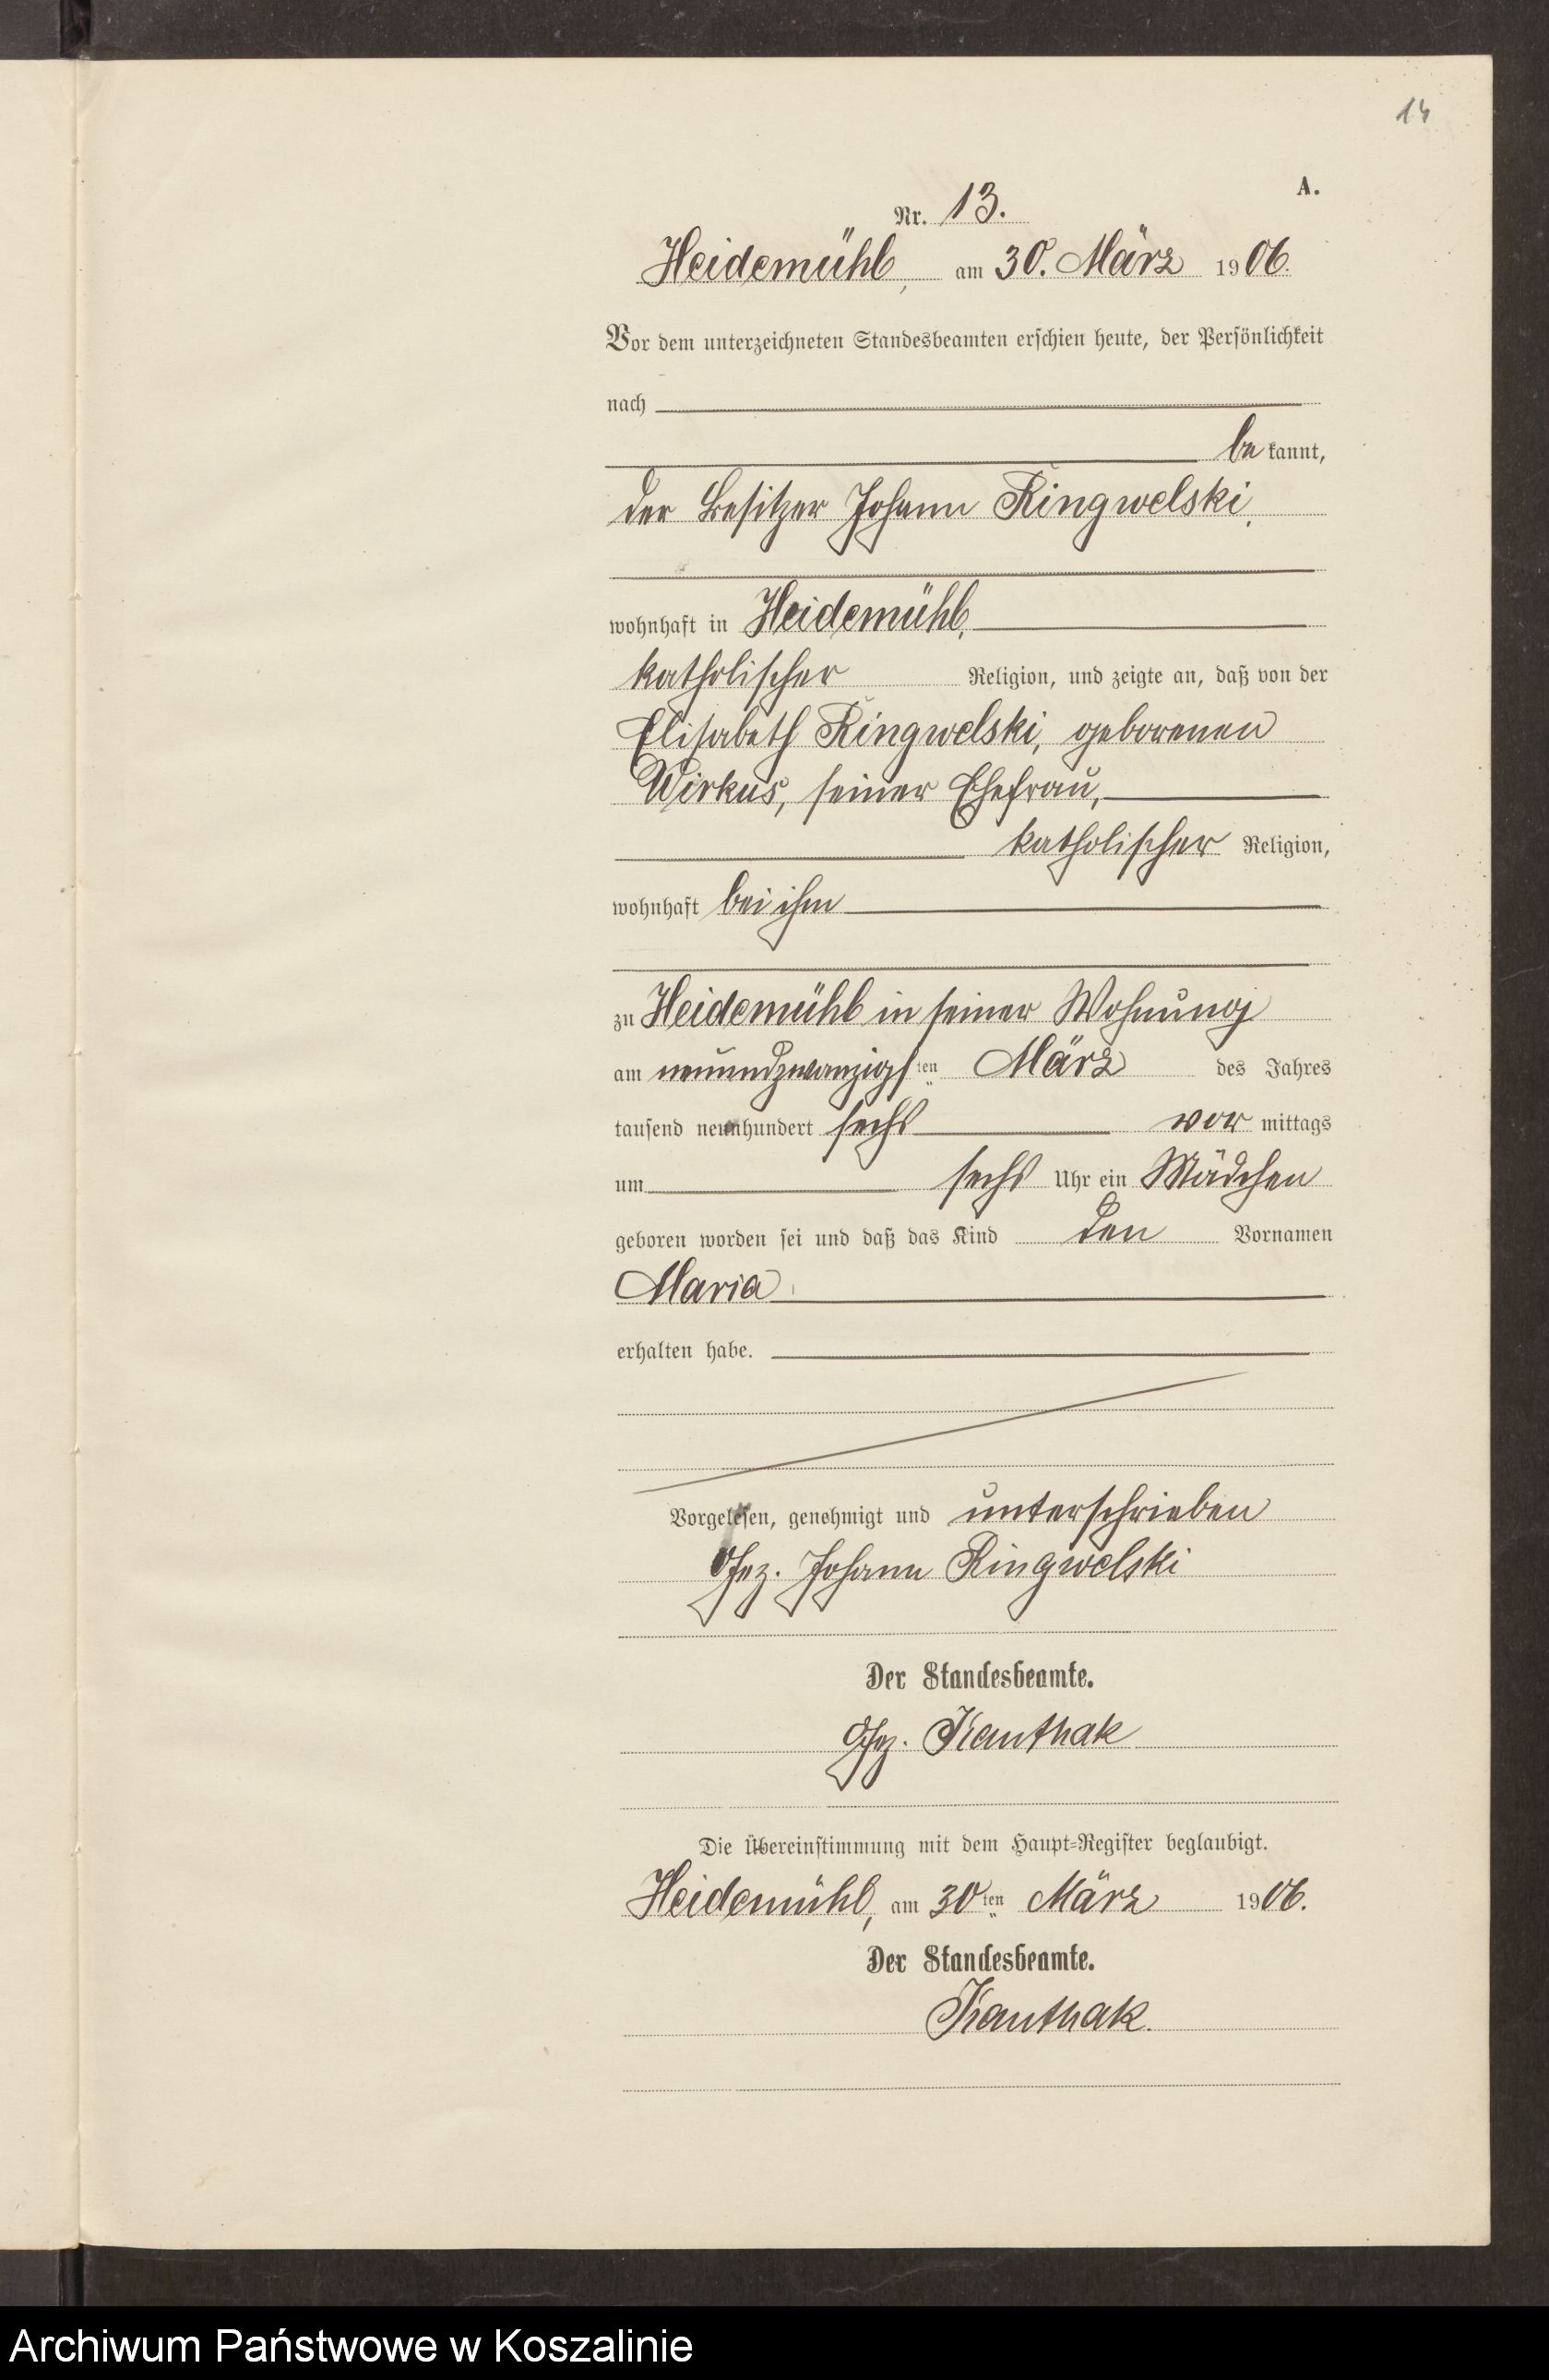 14
A.
Nr. 13.
Heidemühl, am 30. März 1906.
Vor dem unterzeichneten Standesbeamten erschien heute, der Persönlichkeit
nach
be kannt,
der Besitzer Johann Ringwelski,
wohnhaft in Heidemühl,
katholischer Religion, und zeigte an, daß von der
Elisabeth Ringwelski, geborenen
Wirkus, seiner Ehefrau,
katholischer Religion,
wohnhaft bei ihm
zu Heidemühl in seiner Wohnung
am neunundzwanzigsten März des Jahres
tausend neunhundert sechs vor mittags
um sechs Uhr ein Mädchen
geboren worden sei und daß das Kind den Vornamen
Maria
erhalten habe.
Vorgelesen, genehmigt und unterschrieben
Gez. Johann Ringwelski
Der Standesbeamte.
Gez. Kauthak
Die Übereinstimmung mit dem Haupt-Register beglaubigt.
Heidemühl, am 30ten März 1906.
Der Standesbeamte.
Kauthak.
Archiwum Państwowe w Koszalinie